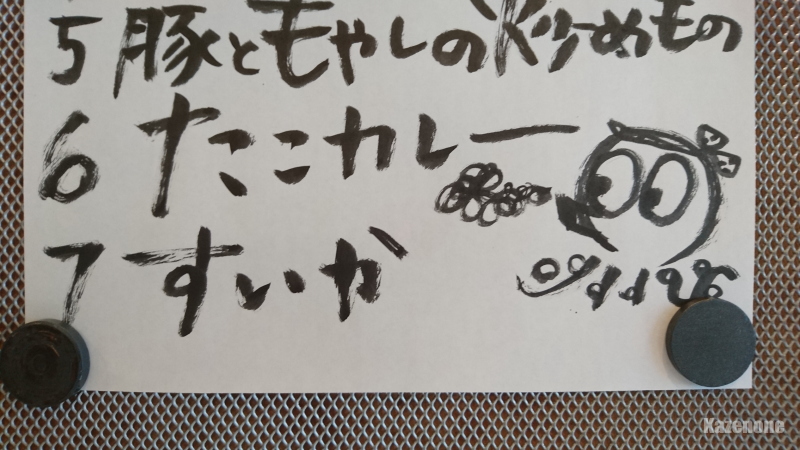 5 豚ともやしの炒めもの
6 たこカレー
7 すいか
Kazenone